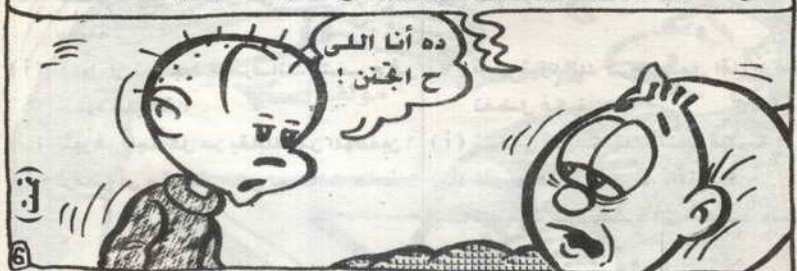 ده أنا اللى
ح اتجنن !
6